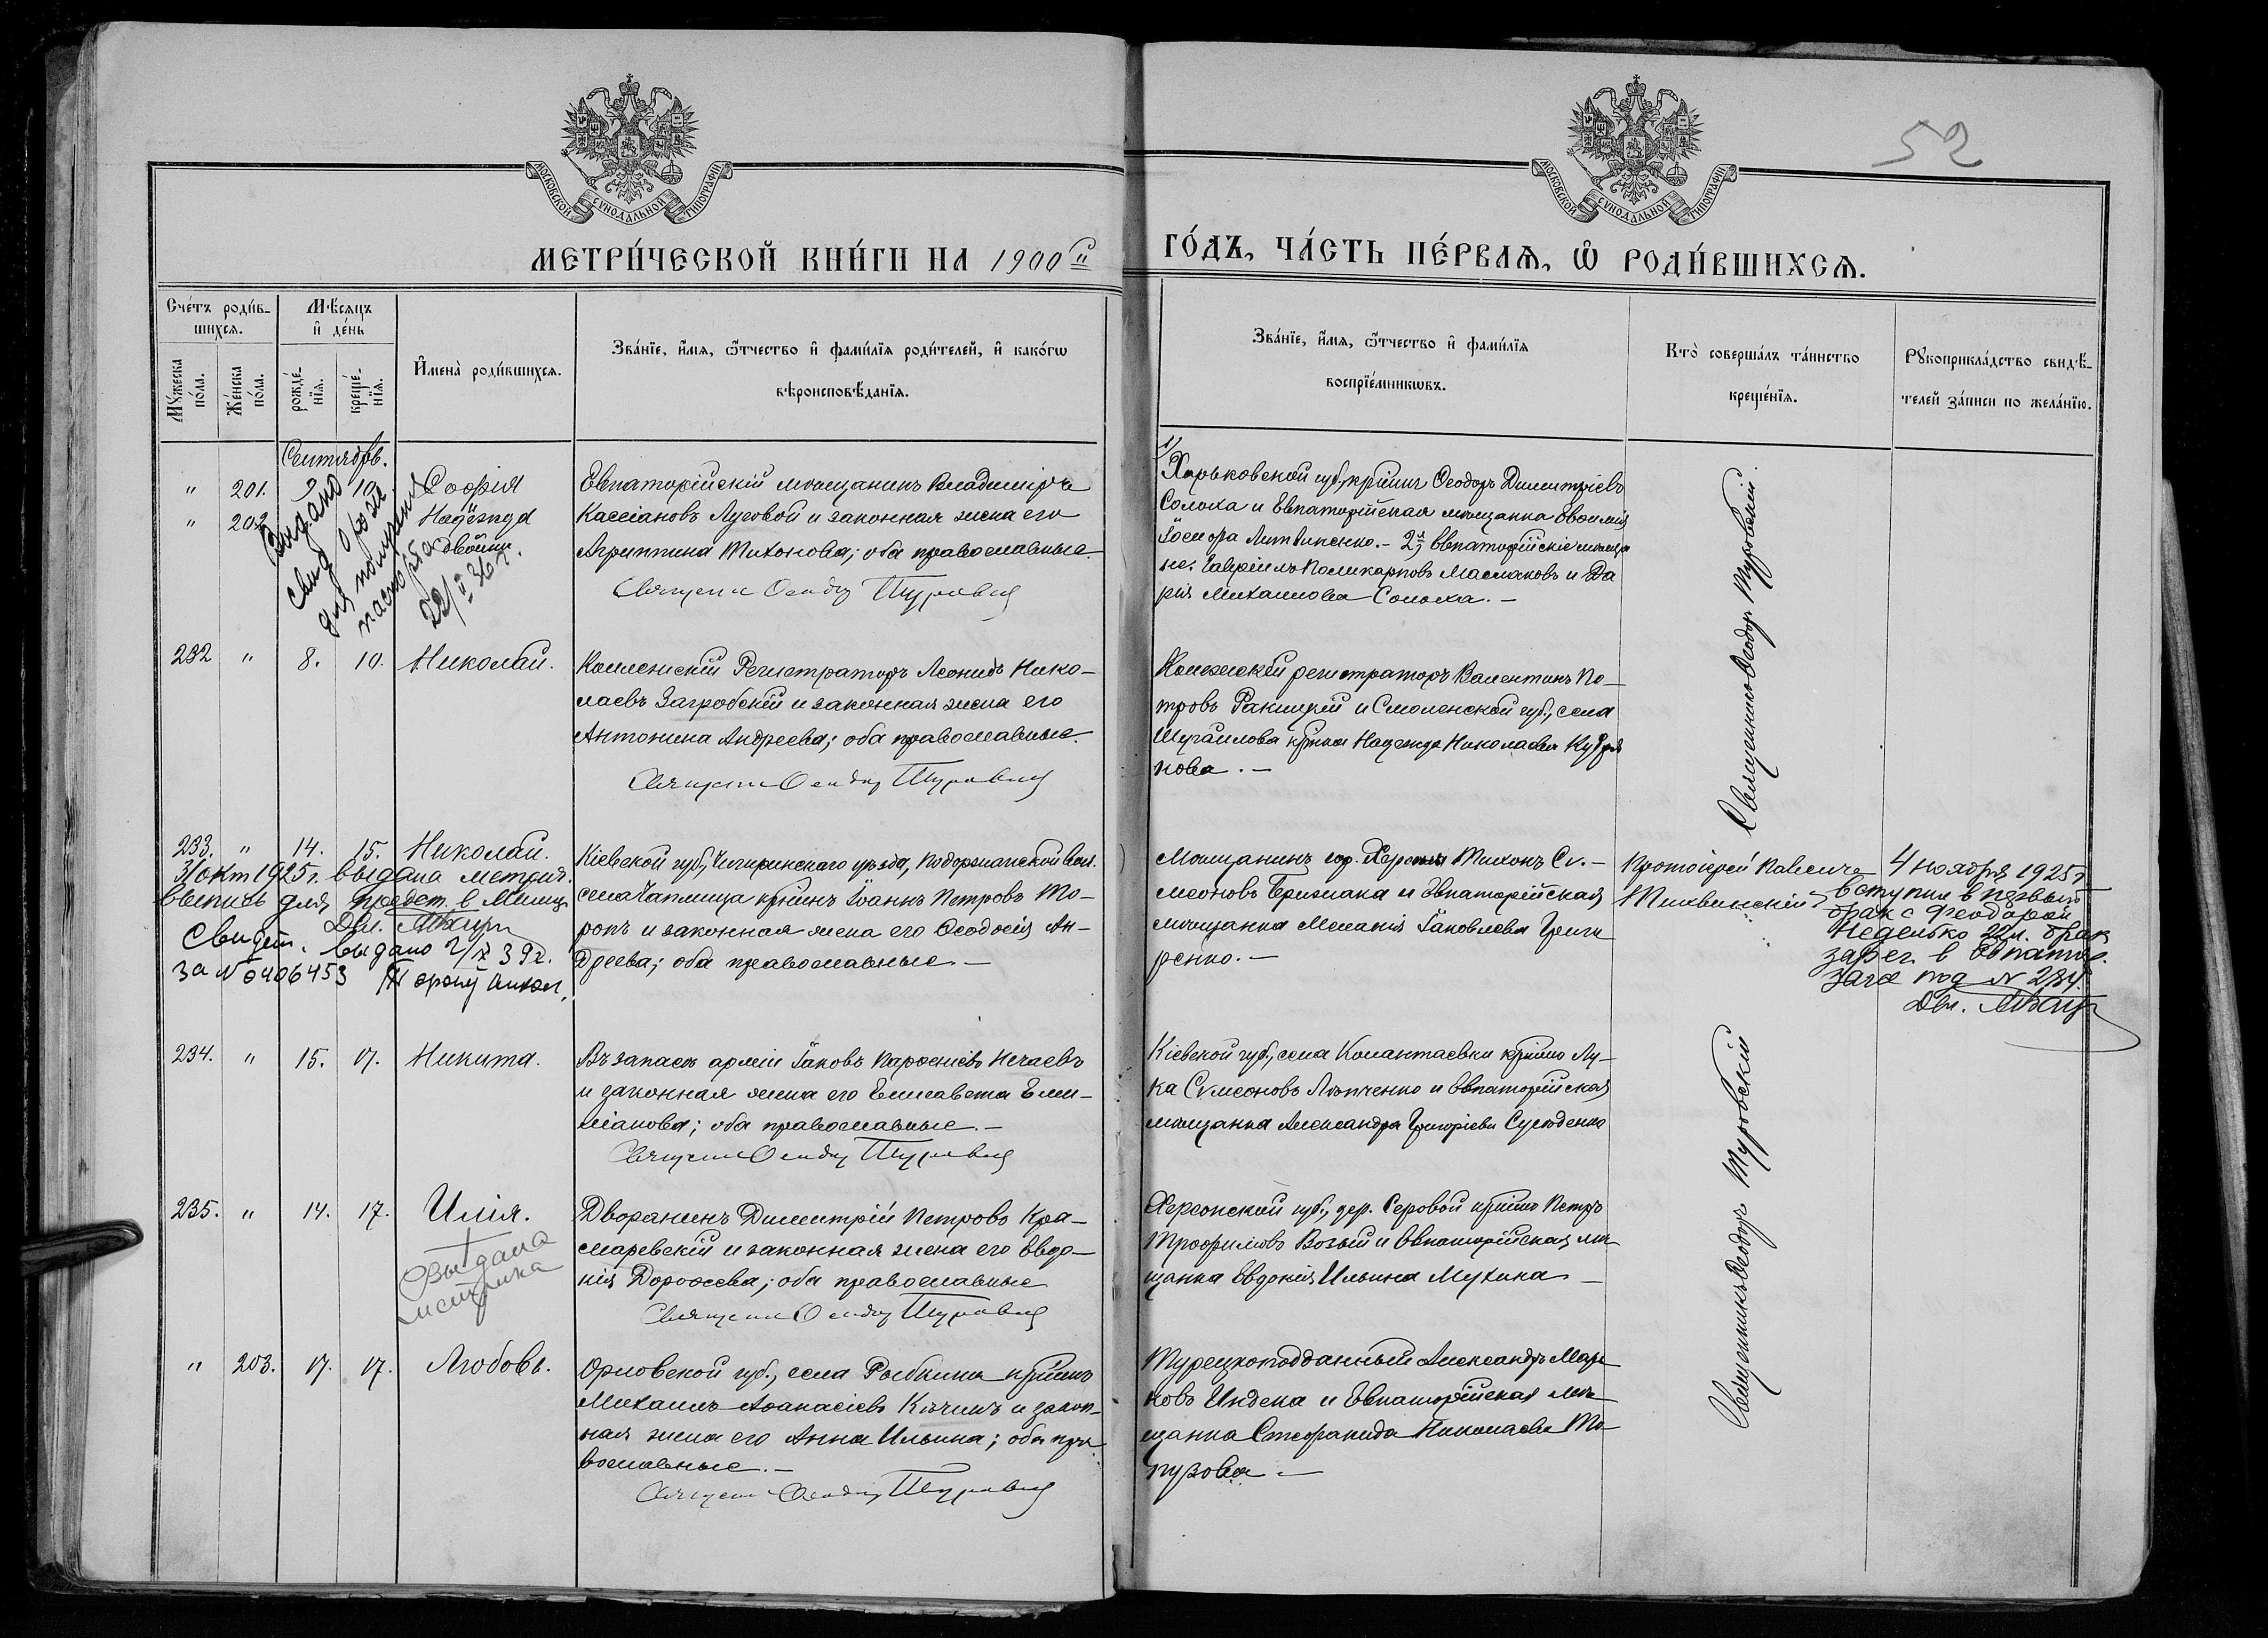 52
МОСКОВСКОЙ СѴНОДАЛЬНОЙ ТИПОГРАФІИ
МОСКОВСКОЙ СѴНОДАЛЬНОЙ ТИПОГРАФІИ
МЕТРИ́ЧЕСКОЙ КНИ́ГИ НА 1900й
ГО́ДЪ, ЧА́СТЬ ПЕ́РВАѦ, Ѡ҆ РОДИ́ВШИХСѦ.
Сче́тъ роди́в-
шихсѧ.
Мꙋ́жеска
по́ла.
Же́нска
по́ла.
Мѣ́сѧцъ
и҆ де́нь
рожде́-
нїѧ.
креще́-
нїѧ.
И҆мена̀ роди́вшихсѧ.
Зва́нїе, и҆́мѧ, ѻ҆́тчество и҆ фами́лїѧ роди́телей, и҆ како́гѡ
вѣроисповѣ́данїѧ.
Зва́нїе, и҆́мѧ, ѻ҆́тчество и҆ фами́лїѧ
воспрїе́мникѡвъ.
Кто̀ соверша́лъ та́инство
креще́нїѧ.
Рꙋкоприкла́дство свидѣ́-
телей за́писи по жела́нїю.
Сентябрь.
" 201. 9 10. Софія
" 202. Надѣжда
двойни
Выдано
свид. о рожд.
для получения
паспорта
22/I 36 г.
Евпаторійскій мѣщанинъ Владиміръ
Кассіановъ Луговой и законная жена его
Агриппина Тихонова; оба православные.
Священникъ Ѳеодоръ Туровскій
1/ Харьковской губ., кр-нинъ Ѳеодоръ Димитріевъ
Солоха и Евпаторійская мѣщанка Евѳимія
Литвиненко. - 2й, Евпаторійскіе мѣща
не, Гавріилъ Поликарповъ Маслаковъ и Да
рія Михаилова Солоха. -
Священникъ Ѳеодоръ Туровскій
232 " 8. 10. Николай.
Коллежскій Регистраторъ Леонидъ Нико-
лаевъ Загробскій и законная жена его
Антонина Андреева; оба православные.
Священникъ Ѳеодоръ Туровскій
Коллежскій регистраторъ Валентинъ Пе-
тровъ Ракицкій и Смоленской губ., села
Шугаилова кр-нка Надежда Николаева Кудря
нова. -
233. " 14. 15. Николай.
31 окт 1925 г. выдана метрич.
выпись для предст. в Милиц.
Свидет. выдано 2/X 39 г.
за № 0406453
Кіевской губ., Чигиринскаго уѣзда, Подорожанской вол.
села Чаплища кр-нинъ Іоаннъ Петровъ То-
ропъ и законная жена его Ѳеодосія Ан-
дреева; оба православные. -
Мѣщанинъ гор. Херсона Тихонъ Сѵ-
меоновъ Брижака и Евпаторійская
мѣщанка Меланія Іаковлева Григо
ренко. -
Протоіерей Павелъ
Тихвинскій
4 ноября 1925 г.
вступил в первый
брак с Феодорой
Неделько 22 л. брак
зарег. в Евпатор.
Загсе под № 234.
234. " 15. 17. Никита.
Въ запасѣ арміи Іаковъ Парѳеніевъ Нечаевъ
и законная жена его Елисавета Еми-
ліанова; оба православные. -
Священникъ Ѳеодоръ Туровскій
Кіевской губ., села Константаевки кр-нинъ Лу-
ка Сѵмеоновъ Лопченко и Евпаторійская
мѣщанка Александра Григоріева Суходенко
Священникъ Ѳеодоръ Туровскій
235. " 14. 17. Илія.
Выдана
метрика
Дворанинъ Димитрій Петровъ Кра-
смаревскій и законная жена его Евдо-
кія Дороѳеева; оба православные
Священникъ Ѳеодоръ Туровскій
Херсонской губ., дер. Серовой кр-нинъ Петръ
Трофимовъ Возый и Евпаторійская мѣ-
щанка Евдокія Ильина Мухина -
" 203. 17. 17. Любовь.
Орловской губ., села Рыбкина кр-нинъ
Михаилъ Аѳанасіевъ Кичинъ и закон-
ная жена его Анна Ильина; оба пра
вославные. -
Священникъ Ѳеодоръ Туровскій
Турецкоподданный Александръ Мар-
ковъ Индека и Евпаторійская мѣ-
щанка Стефанида Николаева То-
пузова -